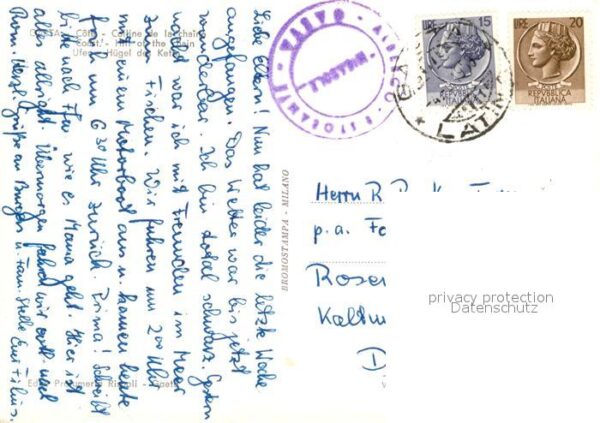 GAETA - Côte - Colline de la chaîne
Coast - Hill of the chain
Ufer - Hügel der Kette
Liebe Eltern! Nun hat leider die letzte Woche
angefangen. Das Wetter war bis jetzt
wunderbar. Ich bin total schwarz. Gestern
nacht war ich mit Freunden im Meer
zum Fischen. Wir fuhren um 200 Uhr
mit einem Motorboot aus u. kamen heute
früh um 6 30 Uhr zurück. Prima! Schreibt
bitte nach Ffm wie es Mama geht. Hier ist
alles allright. Übermorgen fahren wir evtl. nach
Rom. Herzl. Grüße an
Ediz. Profumeria - Gaeta
BROMOSTAMPA - MILANO
ALBERGO - RISTORANTE
MIRASOLE
GAETA
LATINA
LIRE 15
POSTE
REPVBBLICA
ITALIANA
LIRE 20
POSTE
REPVBBLICA
ITALIANA
Herrn R.
p.a.
privacy protection
Datenschutz